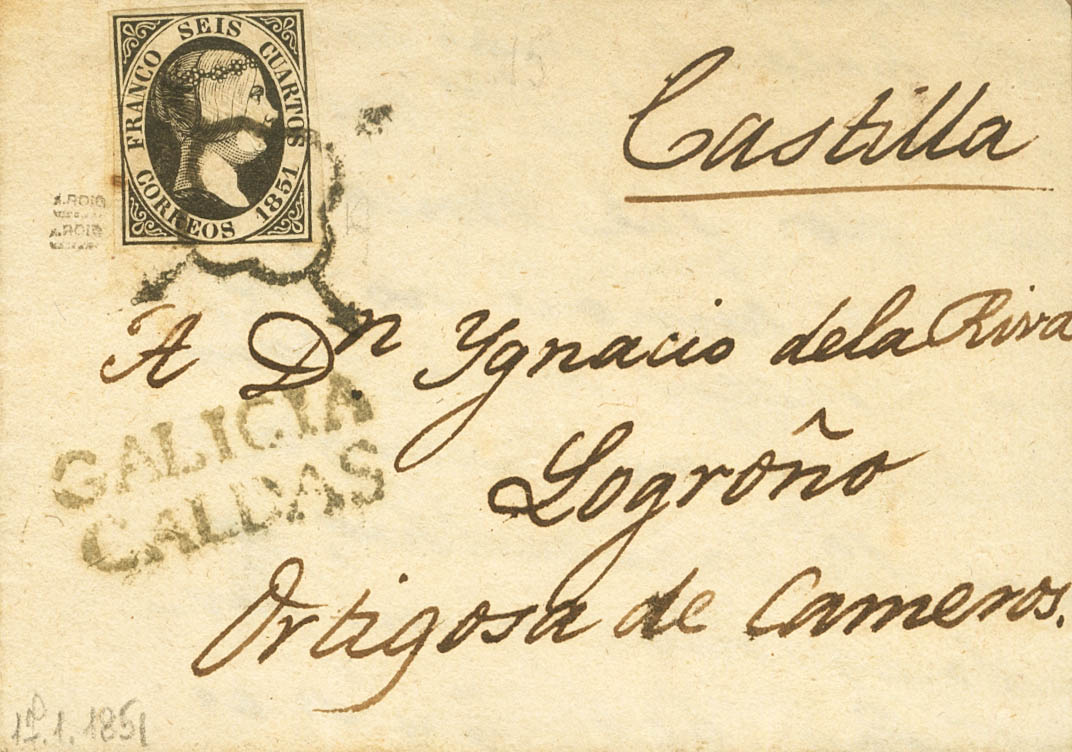 FRANCO SEIS CUARTOS
CORREOS 1851
A.ROIG
A.ROIG
Castilla
A Dn. Ygnacio dela Riva
GALICIA
CALDAS
Logroño
Ortigosa de Cameros.